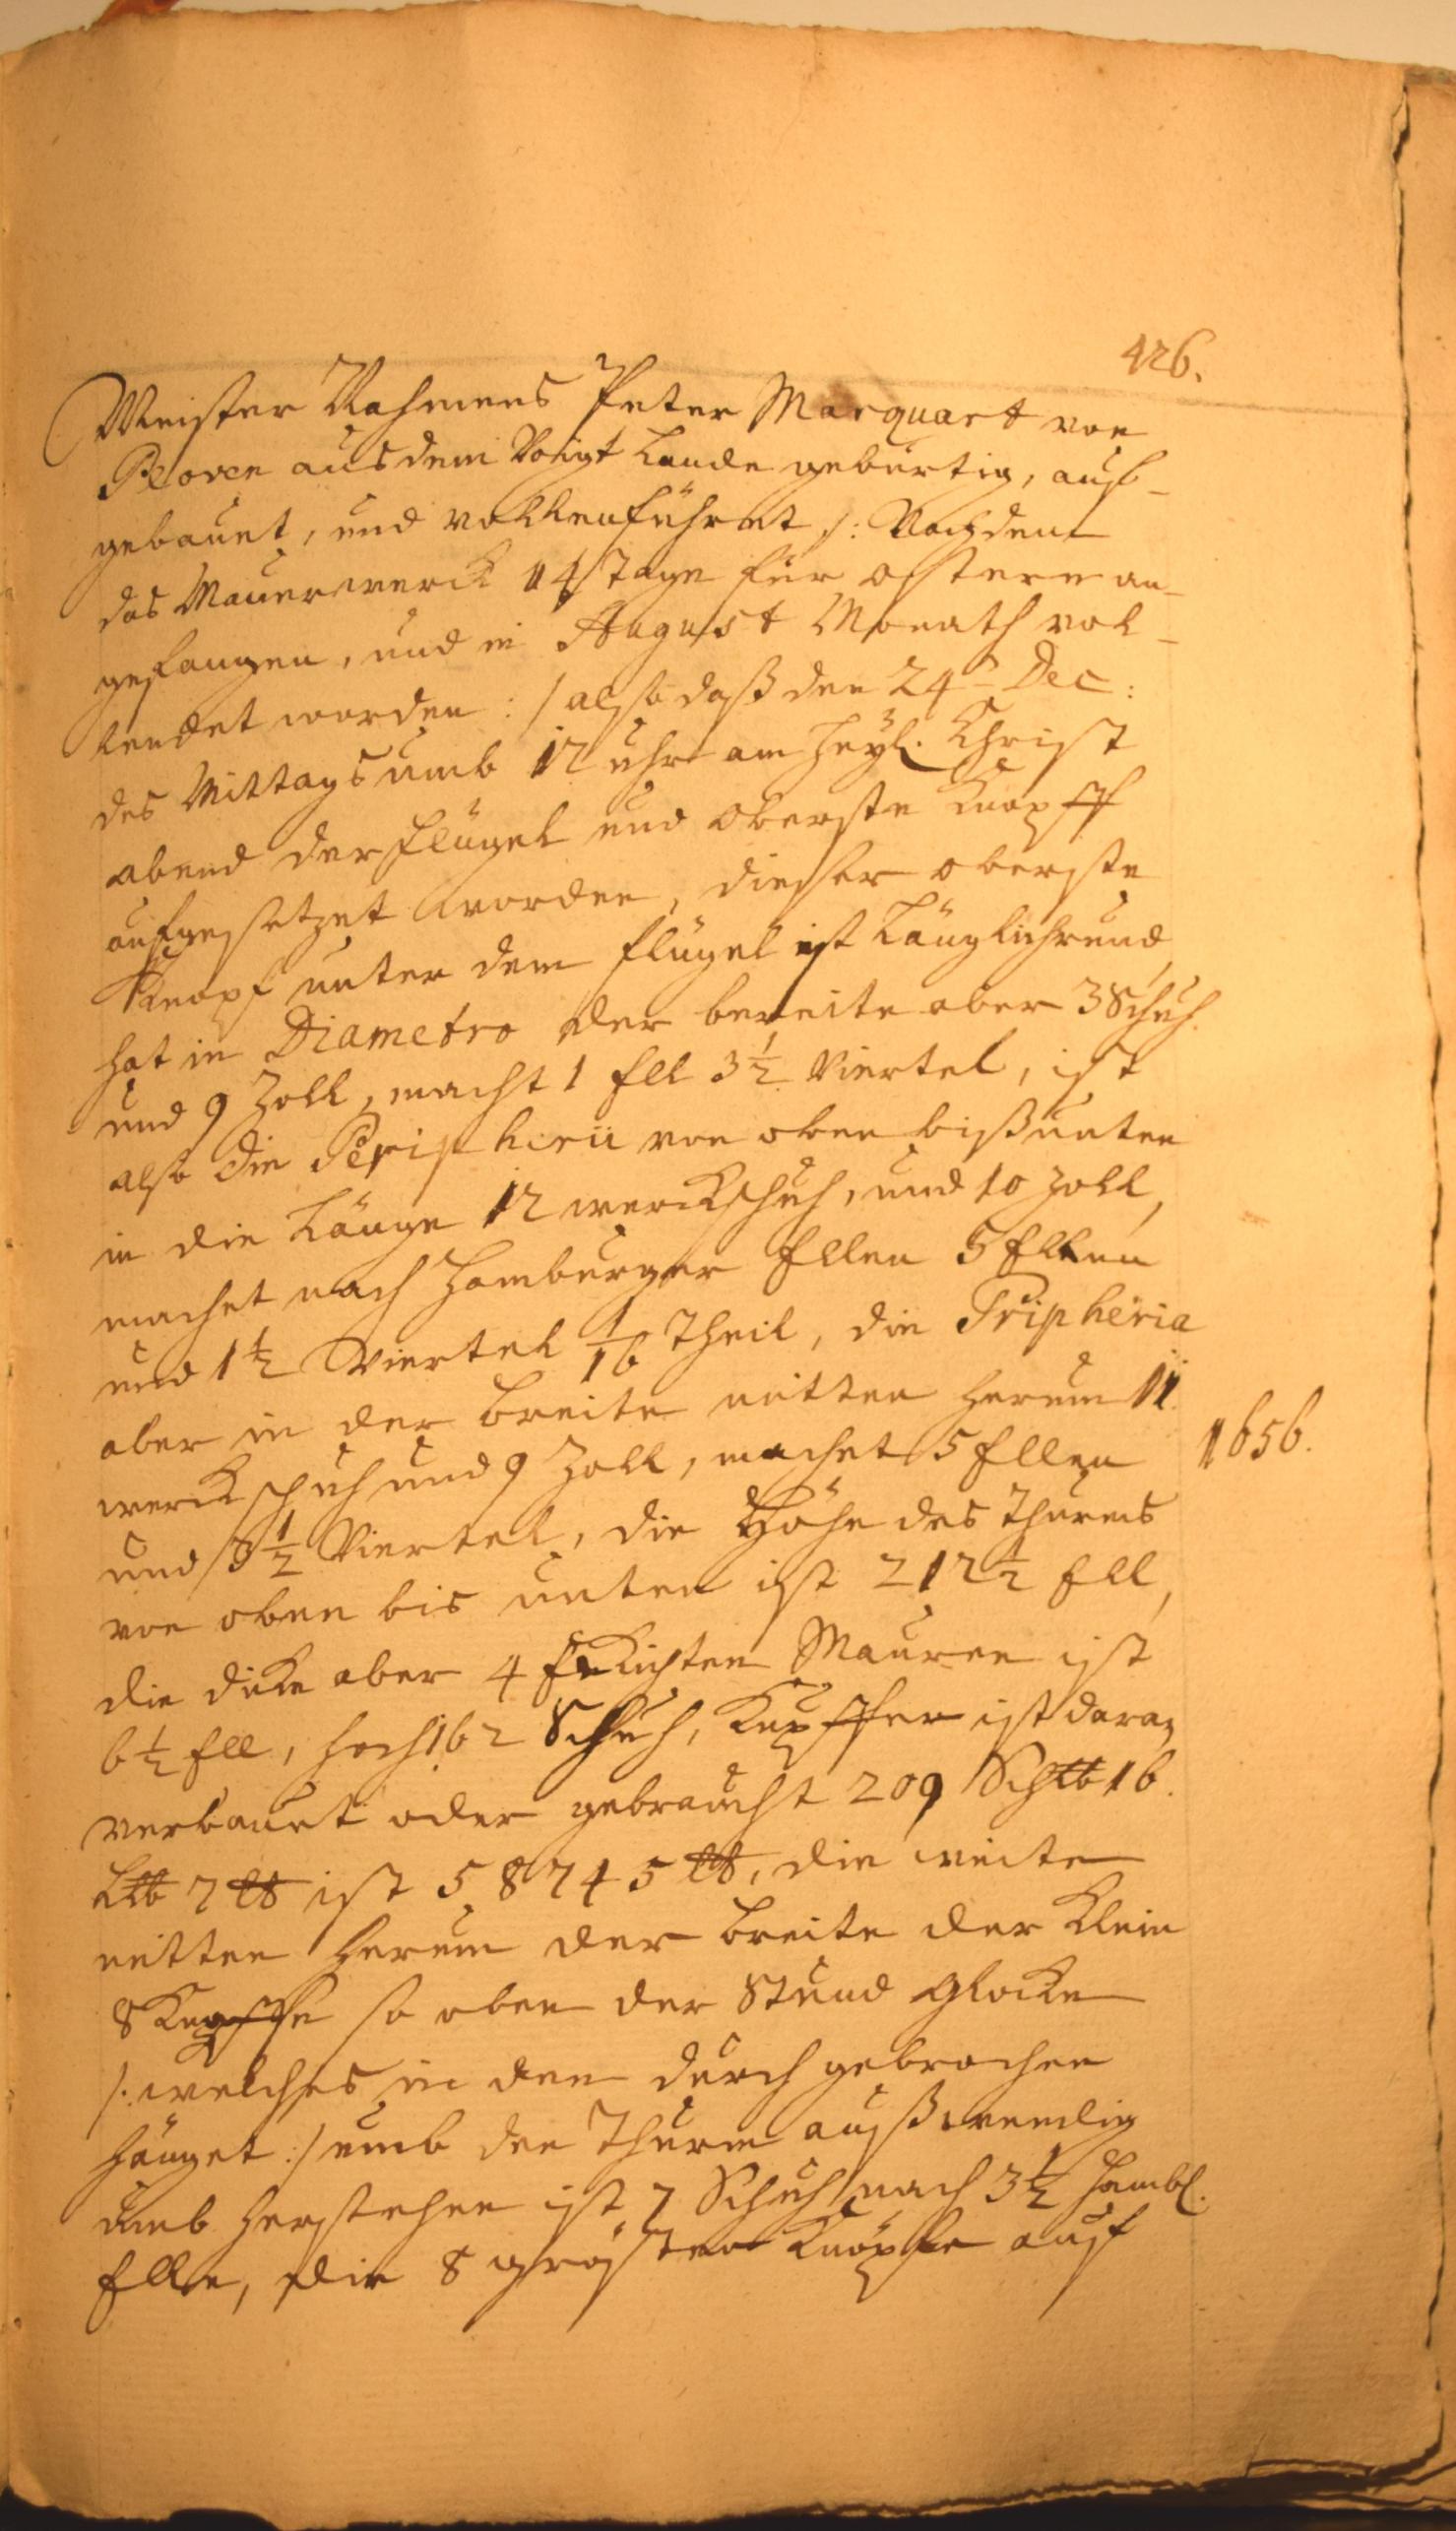 426.
Meister Nahmens Peter Marquart von
Ploven aus dem Voigt Lande gebürtig, auf-
gebauet, und vollenführet /: Nachdem
das Mauerwerck 14 Tage für ostern an-
gefangen, und in August Monath vol-
lendet worden :/ also daß den 24 Dec:
des Mittags umb 12 uhr am heyl. Christ
abend der flügel und Oberste Knopff
aufgesetzet worden, dieser oberste
Knopf unter dem flügel ist Länglichrund,
hat in Diametro der bereite aber 3 Schuh.
und 9 Zoll, macht 1 Ell 3½ Viertel, ist
also die Peripherii von oben biß unten
in die Länge 12 werckschuh, und 10 Zoll,
machet nach Hamburger Ellen 5 Ellen
und 1½ Viertel 1/16 Theil, die Pripheria
aber in der breite mitten herum 11.
werckschuh und 9 Zoll, machet 5 Ellen
1656.
und 3½ Viertel, die Höhe des Thurms
von oben bis unten ist 212½ Ell,
die dicke aber 4 Eckichten Mauren ist
6½ Ell, hoch 162 Schuh, Kupffer ist daran
verbauet oder gebraucht 209 Sch℔ 16.
L℔ 7 ℔ ist 58745 ℔, die weite
mitten herum der breite der Klein
8 Knöpffe so oben der Stund Glocken
/: welches in den durch gebrochen
hänget :/ umb den Thurm außwendig
umb herstehen ist 7 Schuh nach 3½ Hambl.
Elle, die 8 grösten Knöpfe auf